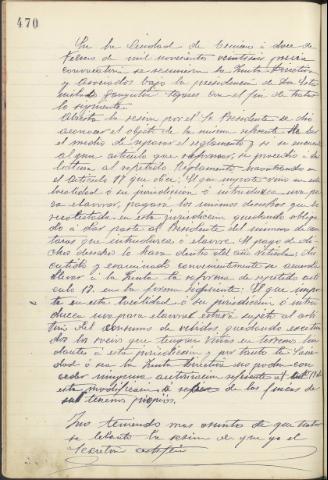 470
En la Ciudad de a doce de
Febrero de mil novecientos veintiseis previa
convocatoria se reunieron la Junta Directiva
y asociados bajo la presidencia de Don
con el fin de tratar
lo siguiente.
Abierta la sesion por el Sr Presidente se dio
a conocer el objeto de la misma referente
el medio de el reglamento y si se
algun articulo que reformar, se procedio a la
lectura al repetido Reglamento
el Articulo 18 que dice, El que importe vino en esta
localidad ó su jurisdiccion é introduzca uva pa
ra elavorar, pagará los mismos derechos que la
recolectada en esta jurisdiccion quedando obliga
do á dar parte al Presidente del numero de can
taros que introduzca ó elavore. El pago de di
chos derechos lo hara dentro del año
cutido y examinado convenientemente se acuerda
llevar á la Junta la reforma de repetido arti
culo 18. en la forma siguiente: El que impor
te en esta localidad ó su jurisdiccion ó intro
duzca uva para elavorar estará sujeto al arbi
trio del consumo de vehidas, quedando
dos los socios que tengan viñas en terrenos lin
dantes á esta jurisdiccion y por tanto la Socie
dad ó sea la Junta Directiva no podra con
ceder ninguna autorizacion referente al
esta modificacion de las fincas de
terrenos propios.
Y no teniendo mas asuntos de que tratar
se levantó la sesion de que yo el
Secretario certifico